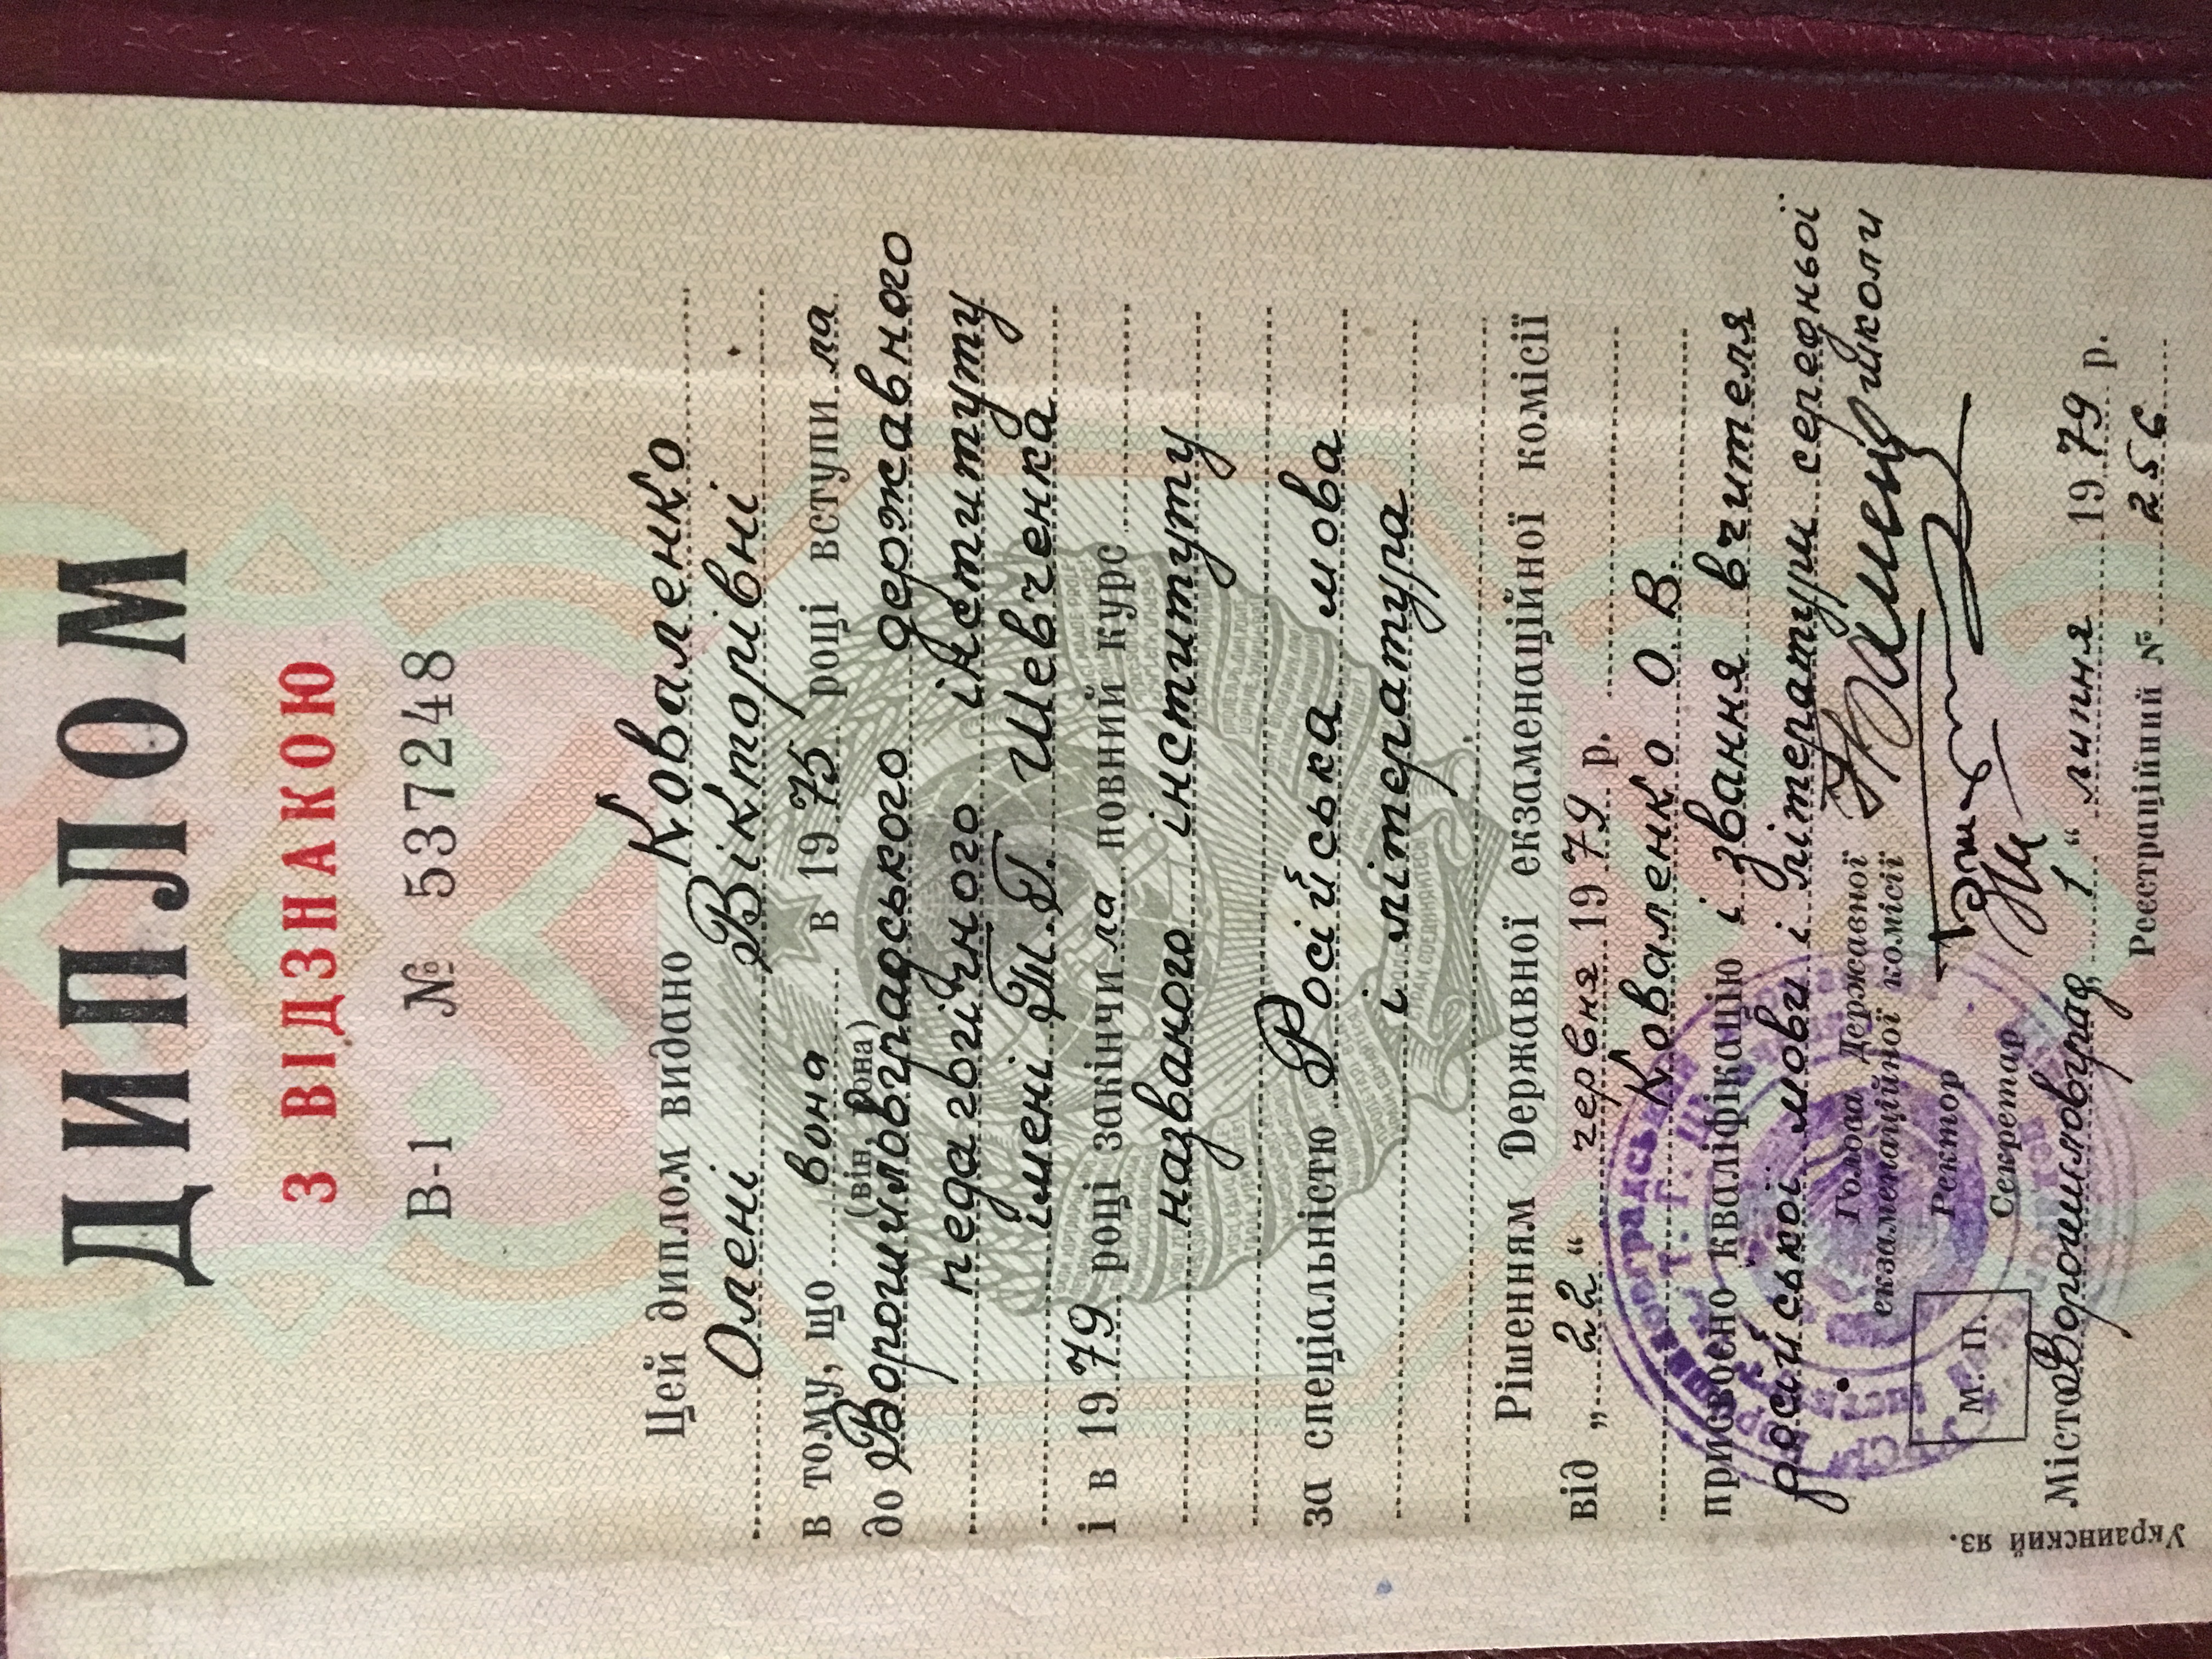 ДИПЛОМ
З ВІДЗНАКОЮ
В-1 № 537248
Цей диплом видано Коваленко
Олені Вікторівні
в тому, що вона в 1975 році вступила
(він, вона)
до Ворошиловградського державного
педагогічного інституту
імені Т. Г. Шевченка
і в 1979 році закінчила повний курс
названого інституту
за спеціальністю Російська мова
і література
Рішенням Державної екзаменаційної комісії
від „22“ червня 1979 р.
Коваленко О. В.
присвоєно кваліфікацію і звання вчителя
російської мови і літератури середньої
школи
Голова Державної
екзаменаційної комісії
Ректор
Секретар
М. П.
Місто Ворошиловград „1“ липня 1979 р.
Реєстраційний № 256
Украинский яз.